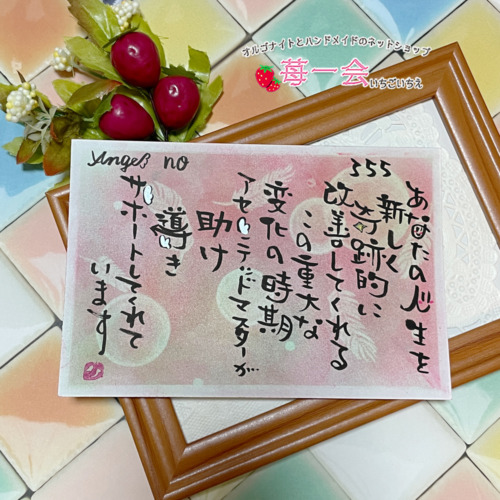 オルゴナイトとハンドメイドのネットショップ
苺一会いちごいちえ
Angel no
355
あなたの人生を
新しく奇跡的に
改善してくれる
この重大な
変化の時期
アセンデッドマスターが
助け
導き
サポートしてくれて
います